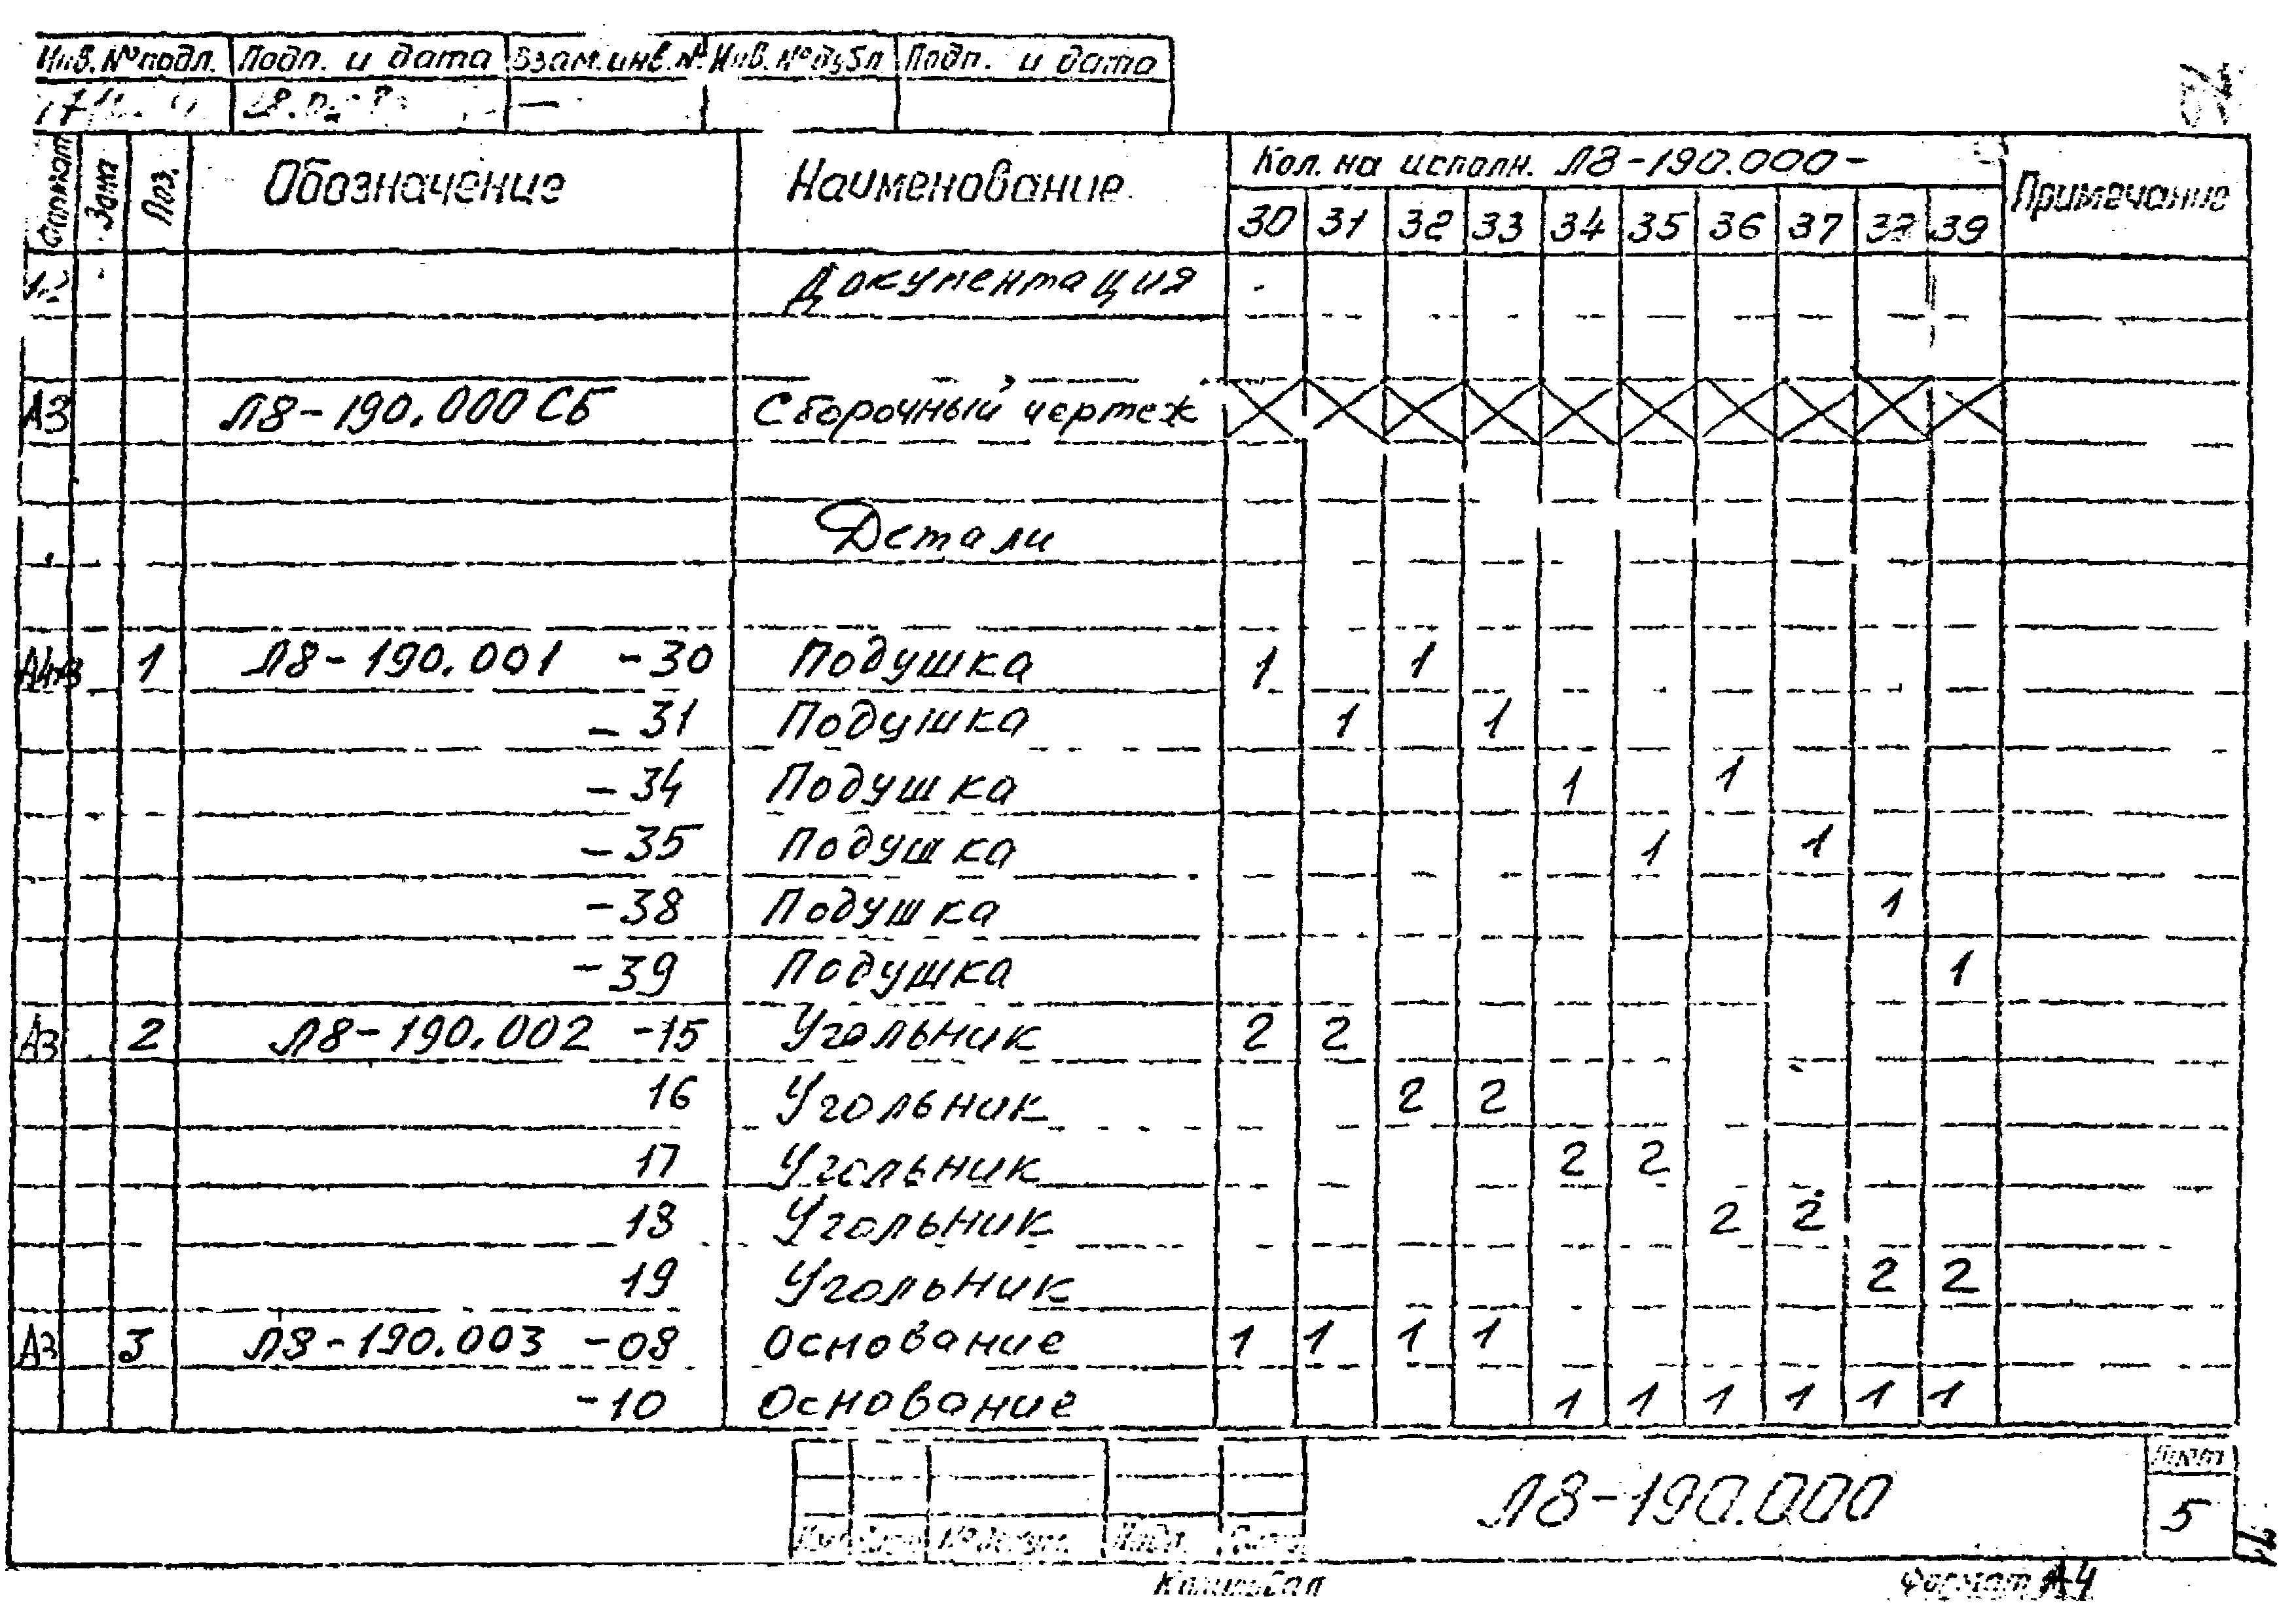 Инв. № подл. Подп. и дата Взам. инв. № Инв. № дубл Подп. и дата
Формат Зона Поз. Обозначение Наименование Кол. на исполн. Л8-190.000- Примечание
30 31 32 33 34 35 36 37 38 39
Документация
А3 Л8-190.000 СБ Сборочный чертеж
Детали
А4х3 1 Л8-190.001 -30 Подушка 1 1
-31 Подушка 1 1
-34 Подушка 1 1
-35 Подушка 1 1
-38 Подушка 1
-39 Подушка 1
А3 2 Л8-190.002 -15 Угольник 2 2
16 Угольник 2 2
17 Угольник 2 2
18 Угольник 2 2
19 Угольник 2 2
А3 3 Л8-190.003 -08 Основание 1 1 1 1
-10 Основание 1 1 1 1 1 1
Л8-190.000 Лист
5
№ докум. Подп. Дата
Копировал Формат А4